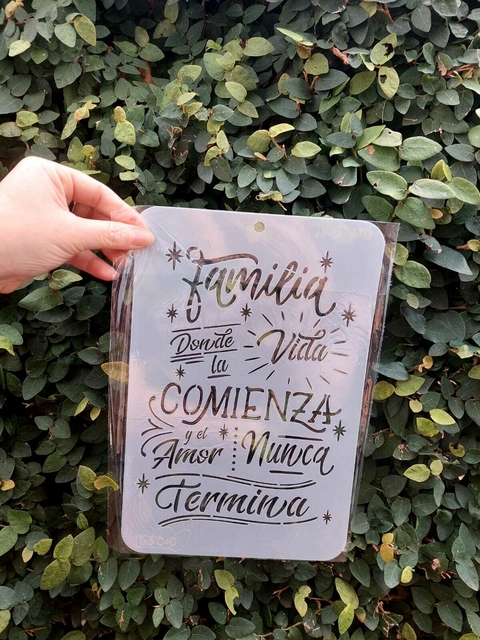 Familia
Donde
la
Vida
COMIENZA
y el
Amor
Nunca
Termina